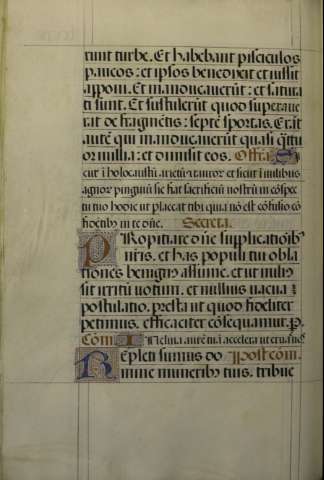 runt turbe. Et habebant pisciculos
paucos: et ipsos benedixit et iussit
apponi. Et manducauerūt: et satura
ti sunt. Et sustulerūt quod superaue
rat de fragmētis: septē sportas. Erāt
autē qui manducauerūt quasi q̄ttu
or milia: et dimisit eos. Offer. S
icut ī holocaustū arietū et tauror et sicut ī milibus
agnor pinguiū sic fiat sacrificiū nostrū in cōspec
tu tuo hodie ut placeat tibi quia nō est cōfusio cō
fidētibꝫ in te dn̄e. Secreta.
PRopitiare dn̄e supplicatiōibꝫ
nr̄is. et has populi tui obla
tiones benignꝰ assume. et ut nulliꝰ
sit irritū uotum. et nullius uacua
postulatio. presta ut quod fideliter
petimus. efficaciter cōsequamur. P.
Cōm. Inclina aurē tuā accelera ut eruas nos
REpleti sumus do Postcom.
mine muneribꝫ tuis. tribue